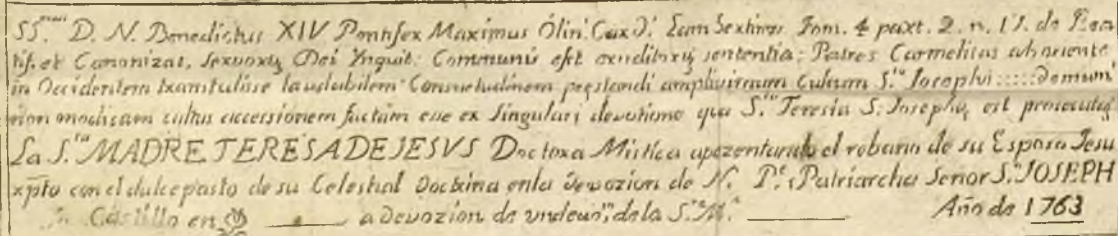 SS.mo D. N. Benedictus XIV Pontifex Maximus Olim Card. Lambertinus Tom. 4 part. 2. n. 17. de Bea
tif. et Canonizat. Servorũ Dei Ynquit: Communis est eruditorũ sententia; Patres Carmelitas ab oriente
in Occidentem transtulisse laudabilem Consuetudinem prestandi amplissimum Cultum S.to Josephi:::::Demum
non modicam cultus accessionem factam esse ex singulari devotione qua S.ta Teresia S. Josephũ est prosecuta
La S.ta MADRE TERESA DE JESVS Doctora Mistica apazentando el rebano de su Esposo Jesu
xp̃to con el dulce pasto de su Celestial Doctrina enla devozion de N. P.e Patriarcha Señor S.n JOSEPH
Castillo en a devozion de vndevo.to de la S.ta M.e Año de 1763